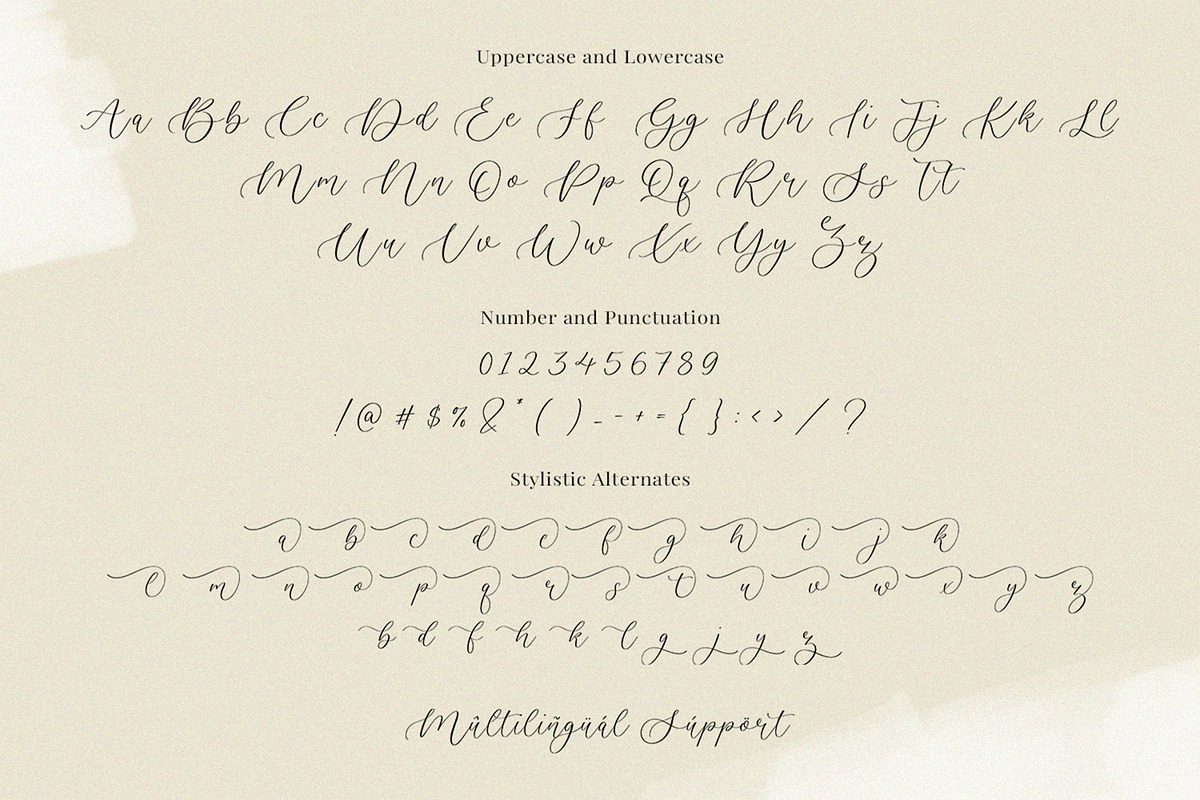 Uppercase and Lowercase
Aa Bb Cc Dd Ee Ff Gg Hh Ii Jj Kk Ll
Mm Nn Oo Pp Qq Rr Ss Tt
Uu Vv Ww Xx Yy Zz
Number and Punctuation
0123456789
!@#$%&*()_-+={}:<>/?
Stylistic Alternates
a b c d e f g h i j k
l m n o p q r s t u v w x y z
b d f h k l g j y z
Múltiliñgüál Súppört